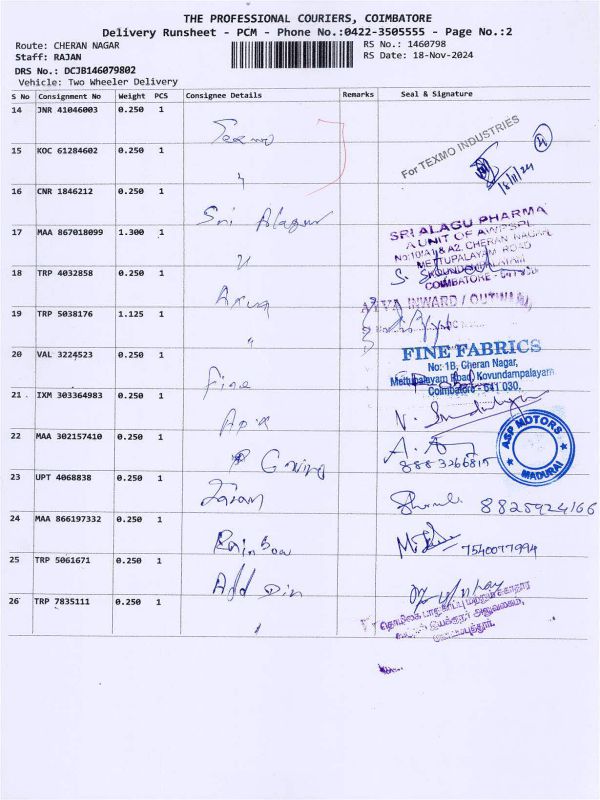 THE PROFESSIONAL COURIERS, COIMBATORE
Delivery Runsheet - PCM - Phone No.:0422-3505555 - Page No.:2
Route: CHERAN NAGAR
RS No.: 1460798
Staff: RAJAN
RS Date: 18-Nov-2024
DRS No.: DCJB146079802
Vehicle: Two Wheeler Delivery
S No Consignment No Weight PCS Consignee Details Remarks Seal & Signature
14 JNR 41046003 0.250 1
Texmo
For TEXMO INDUSTRIES
18/11/24
15 KOC 61284602 0.250 1
"
16 CNR 1846212 0.250 1
Sri Alagu
17 MAA 867018099 1.300 1
"
SRI ALAGU PHARMA
A UNIT OF AWPSPL
No:10(A1 & A2, CHERAN NAGAR
METTUPALAYAM ROAD
KOUNDAMPALAYAM
COIMBATORE - 641 030
18 TRP 4032858 0.250 1
INWARD / OUTWARD
19 TRP 5038176 1.125 1
"
20 VAL 3224523 0.250 1
Fine
FINE FABRICS
No: 1B, Cheran Nagar,
Mettupalayam Road, Kovundampalayam,
Coimbatore - 641 030.
21 IXM 303364983 0.250 1
22 MAA 302157410 0.250 1
8883266815
ASP MOTORS
MADURAI
23 UPT 4068838 0.250 1
8825924166
24 MAA 866197332 0.250 1
Rainbow
7540077994
25 TRP 5061671 0.250 1
Add Din
26 TRP 7835111 0.250 1
"